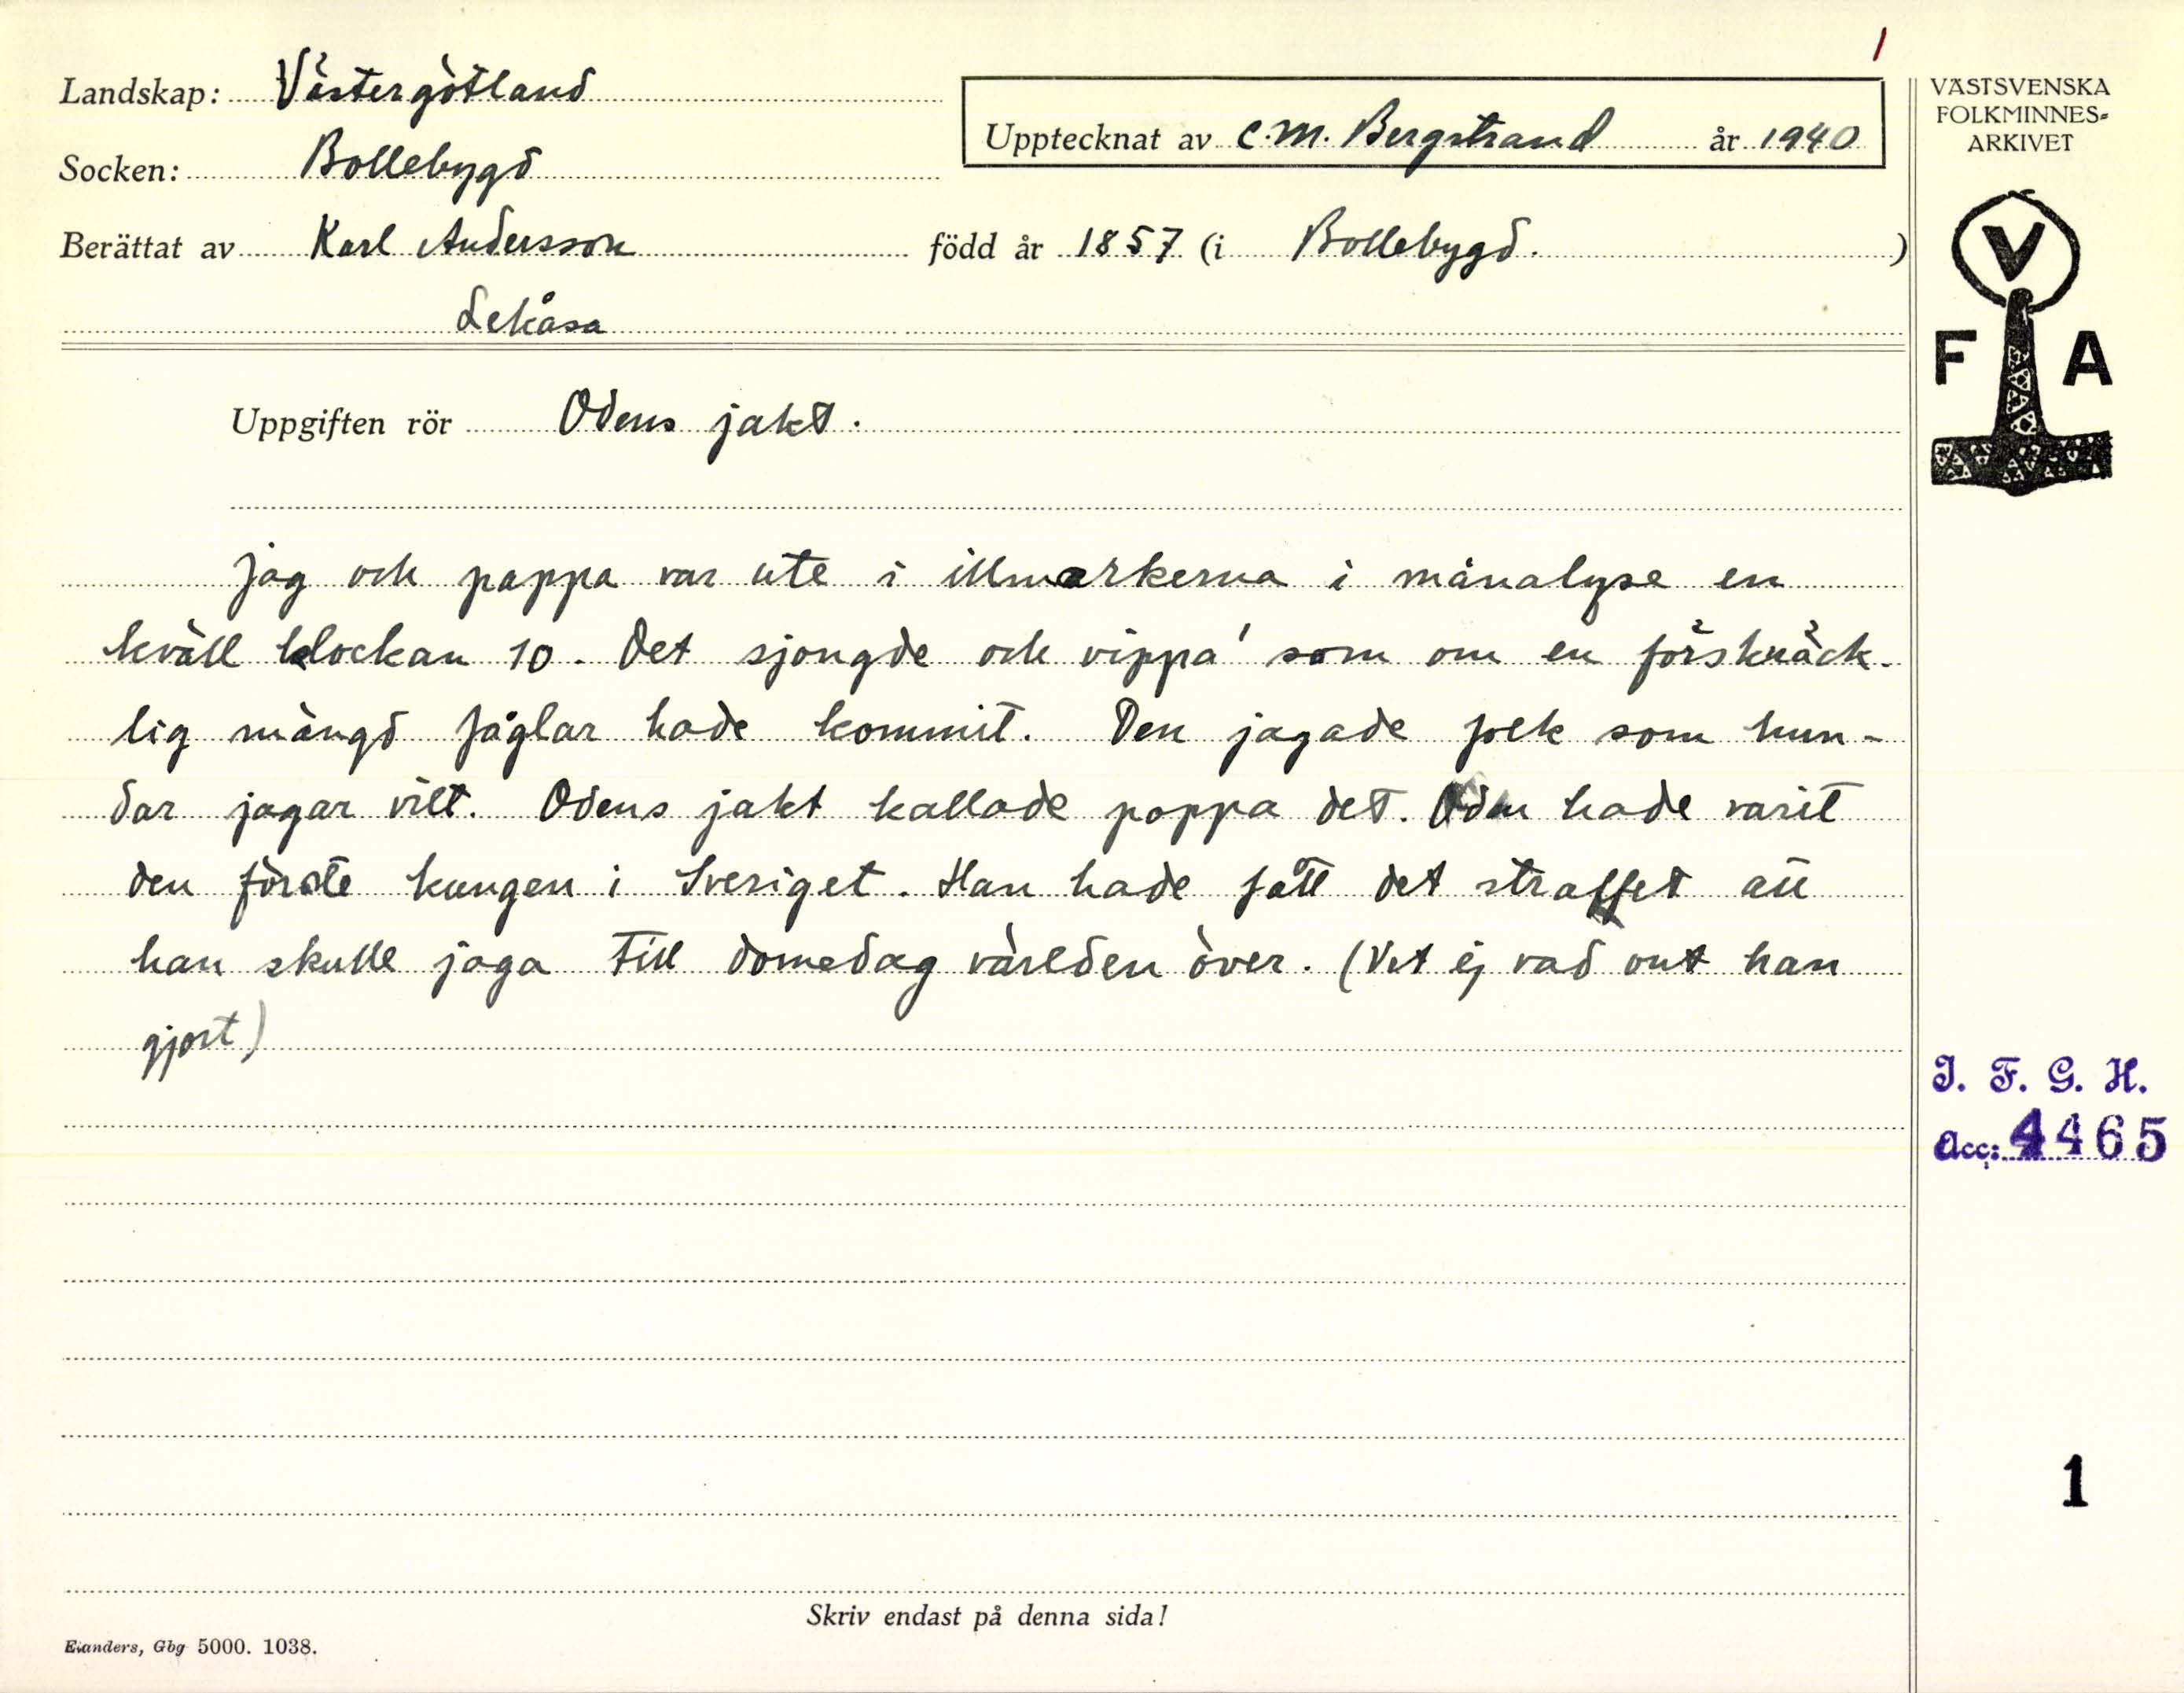 1
Landskap: Västergötland
Upptecknat av C.M. Bergstrand år 1940
Socken: Bollebygd
Berättat av Karl Andersson född år 1857 (i Bollebygd.)
Lekåsa
Uppgiften rör Odens jakt.
Jag och pappa var ute i illmarkerna i månalyse en
kväll klockan 10. Det sjongde och vippa' som om en förskräck-
lig mängd fåglar hade kommit. Den jagade folk som hun-
dar jagar vilt. Odens jakt kallade pappa det. Oden hade varit
den förste kungen i Sveriget. Han hade fått det straffet att
han skulle jaga till domedag världen över. (Vet ej vad ont han
gjort)
Skriv endast på denna sida!
Elanders, Gbg 5000. 1038.
VÄSTSVENSKA
FOLKMINNES-
ARKIVET
V
F A
I. F. G. H.
Acc: 4465
1